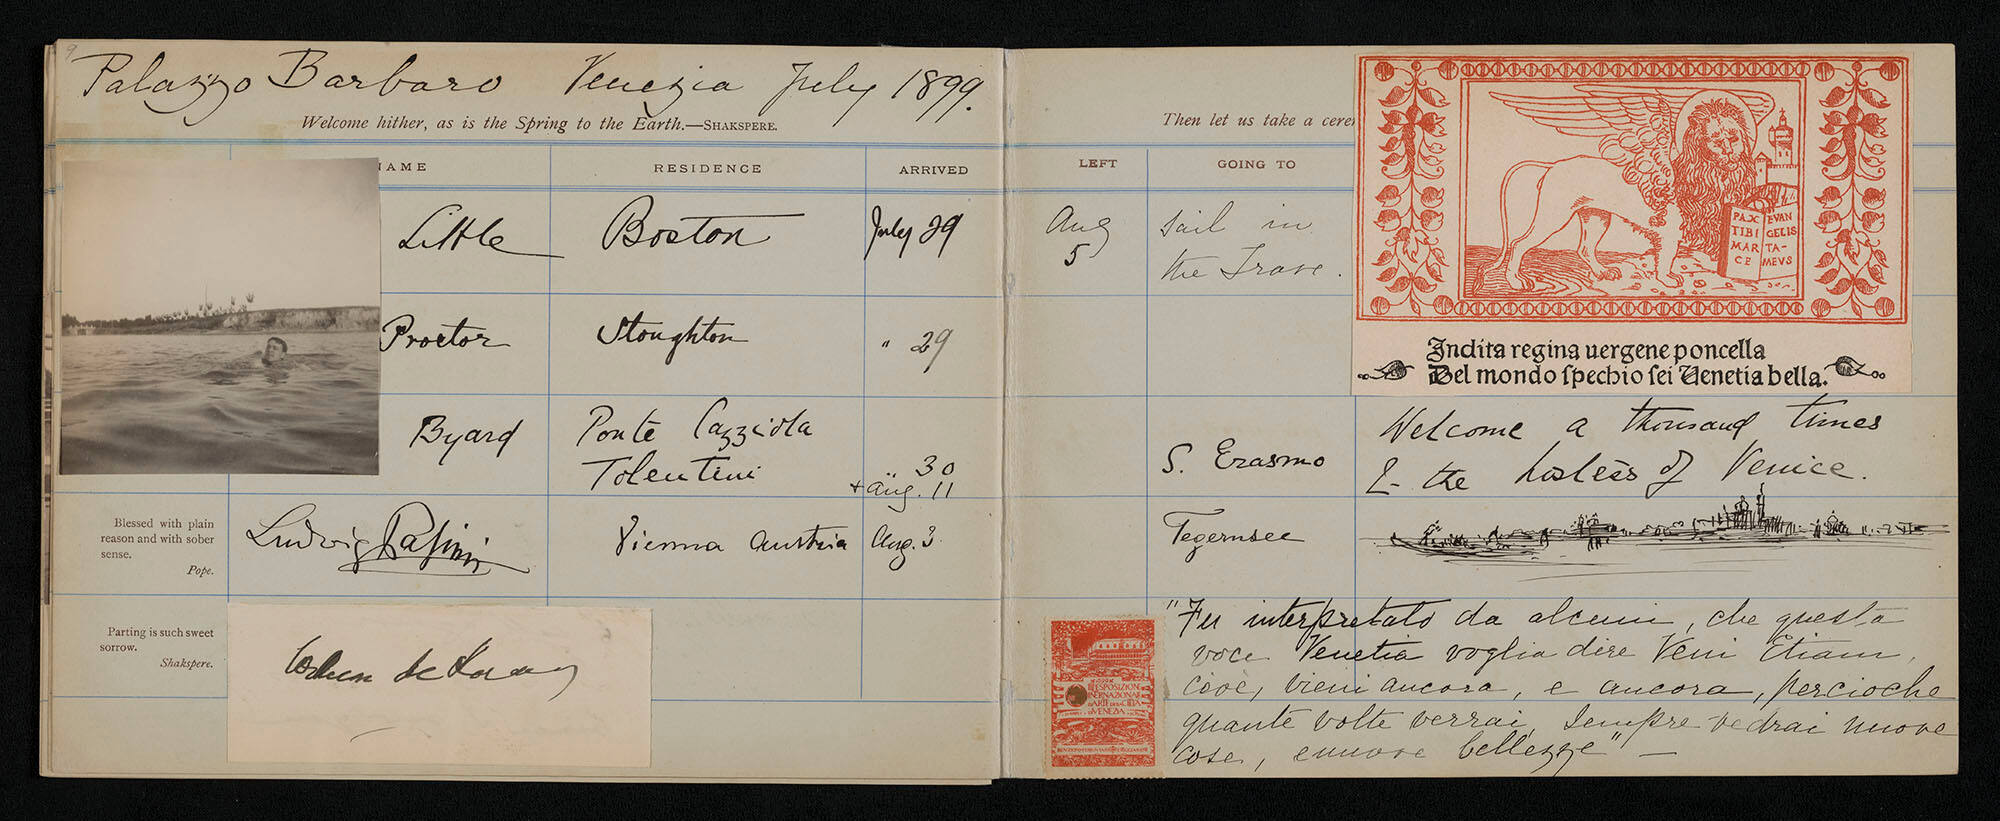 9
Palazzo Barbaro Venezia July 1899.
Welcome hither, as is the Spring to the Earth.—SHAKSPERE.
NAME RESIDENCE ARRIVED
Little Boston July 29
Proctor Stoughton " 29
Byard Ponte Cazziola
Tolentini " 30
+ Aug. 11
Blessed with plain
reason and with sober
sense.
Pope.
Ludwig Passini Vienna Austria Aug. 3
Parting is such sweet
sorrow.
Shakspere.
de
Then let us take a cerem
LEFT GOING TO
Aug Sail in
5 the Trave.
PAX EVAN
TIBI GELIS
MAR TA-
CE MEVS
Inclita regina uergene poncella
Del mondo specchio sei Uenetia bella.
S. Erasmo
Welcome a thousand times
to the hostess of Venice.
Tegernsee
III ESPOSIZIONE
INTERNAZIONALE
D'ARTE DELLA CITTÀ
DI VENEZIA
"Fu interpretato da alcuni, che questa
voce Venetia voglia dire Veni Etiam,
cioè, vieni ancora, e ancora, percioche
quante volte verrai, sempre vedrai nuove
cose, e nuove bellezze" —